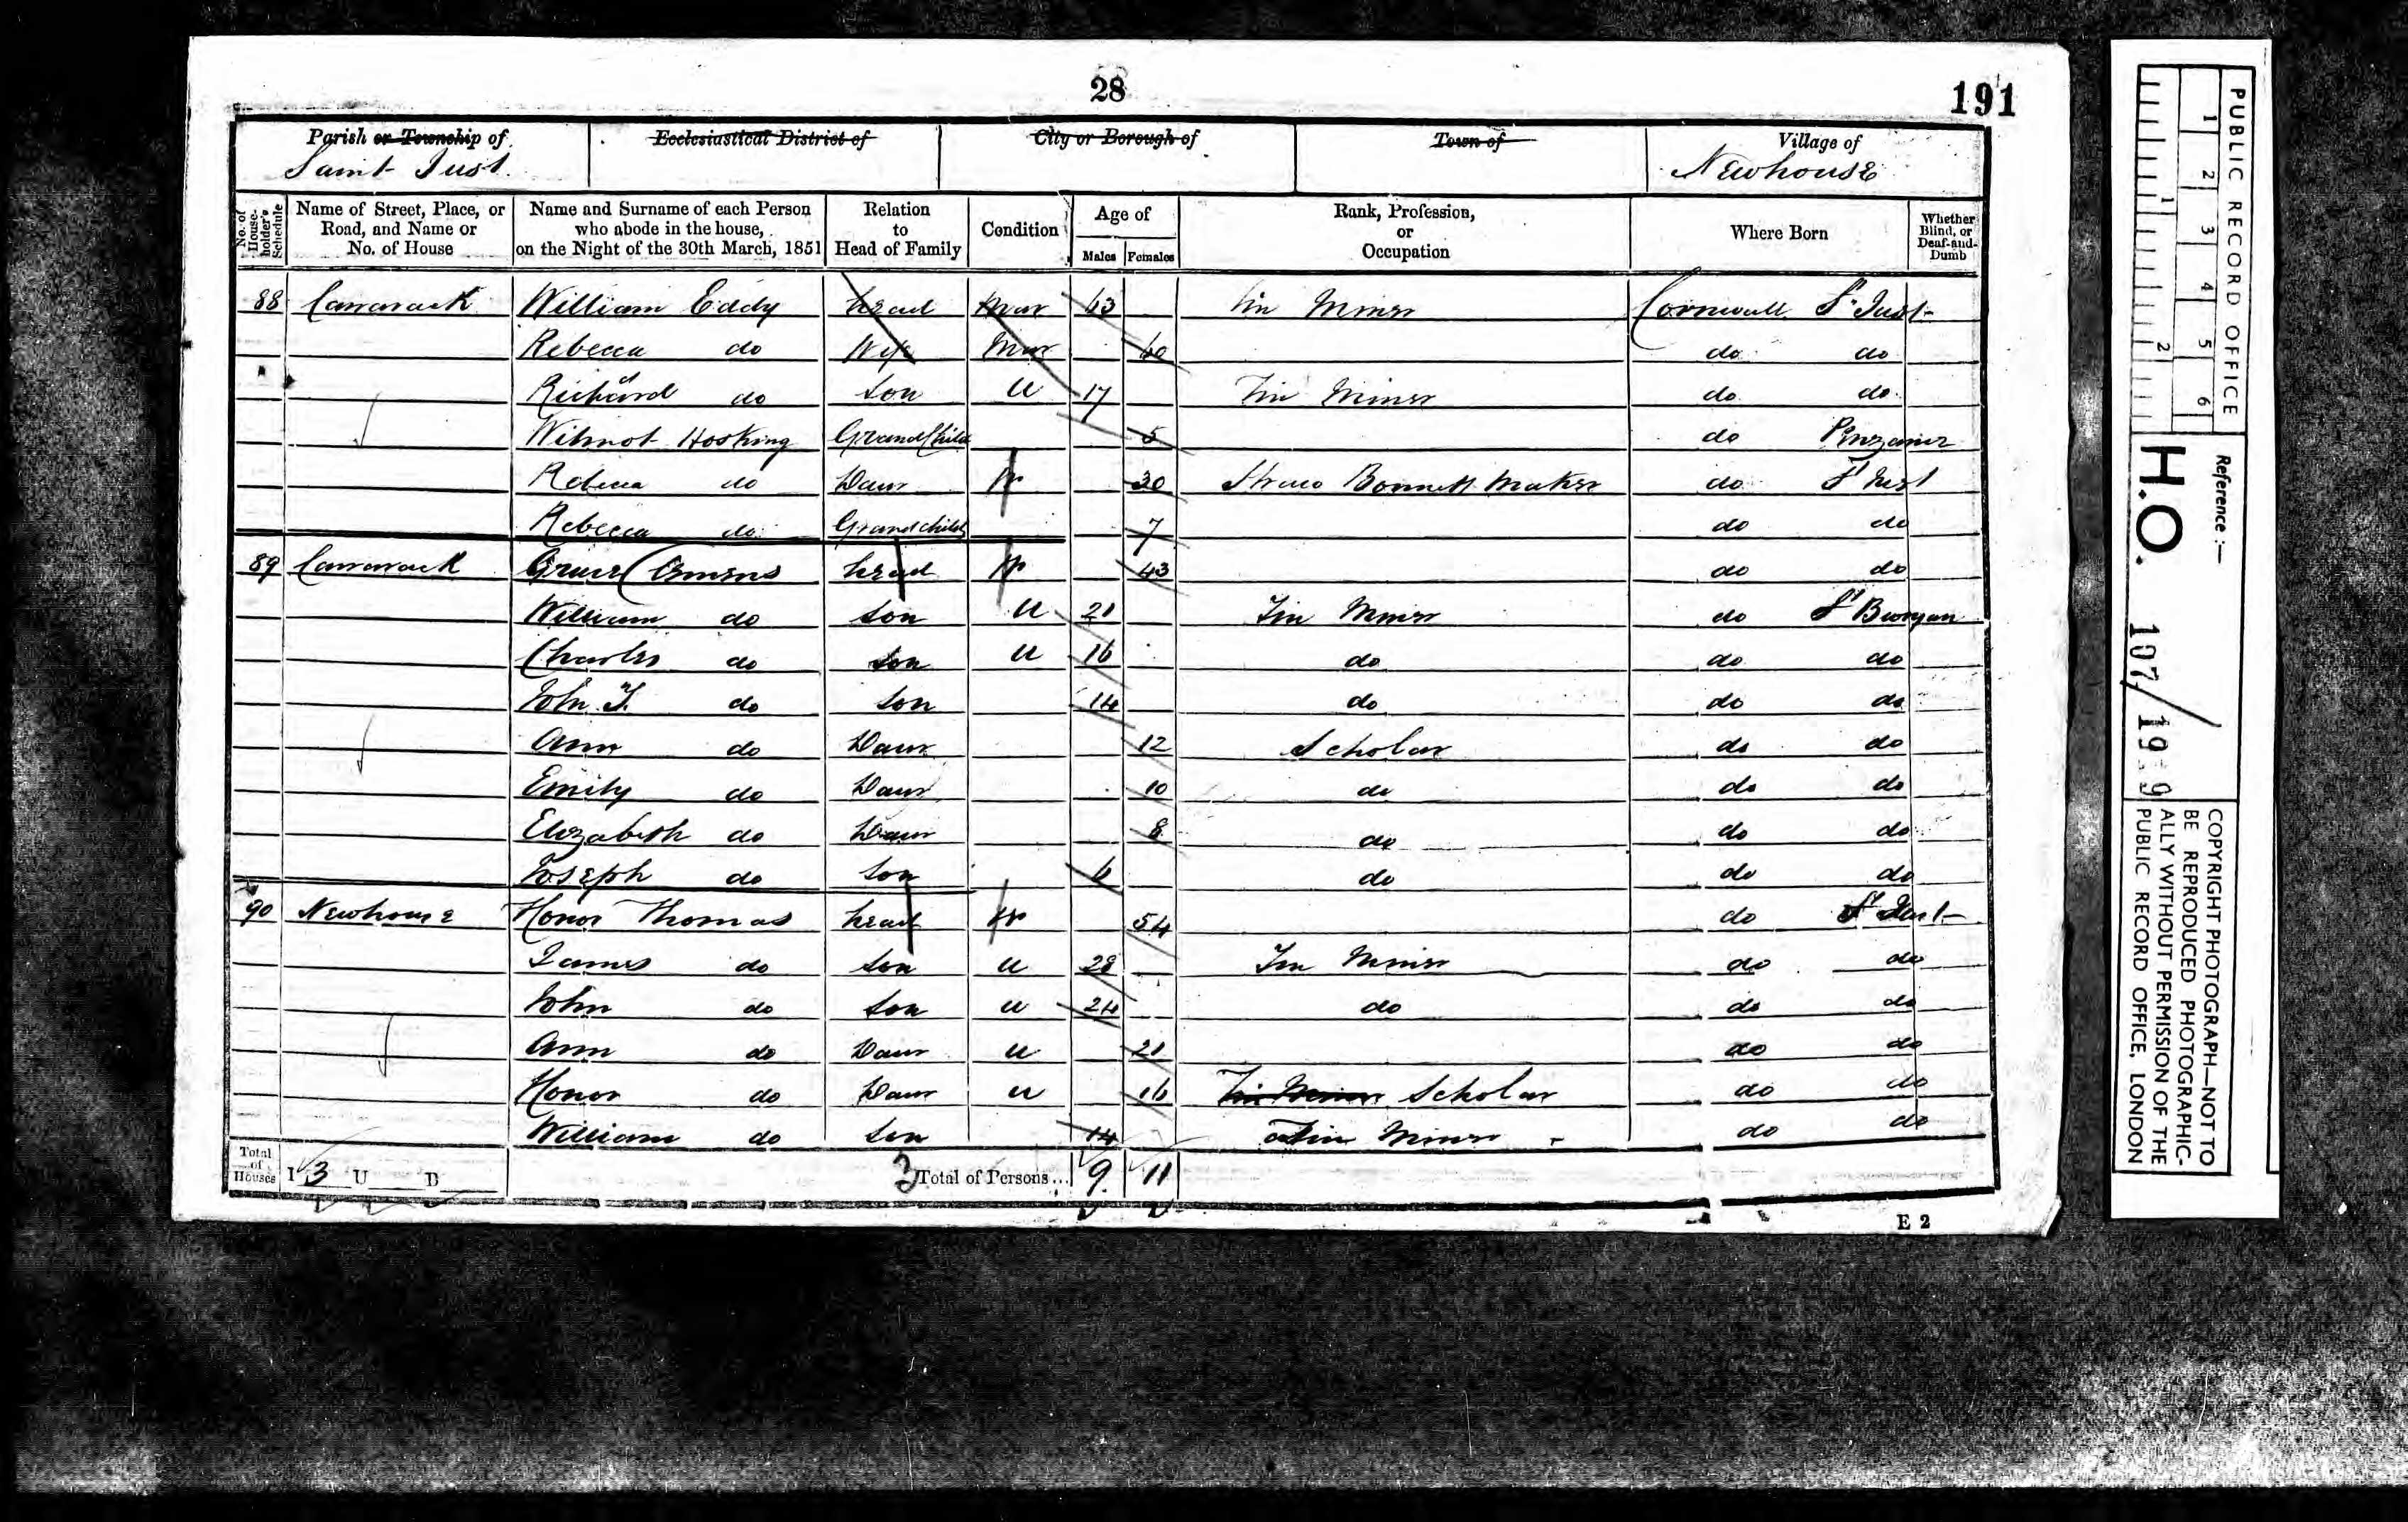 28
191
Parish or Township of Saint Just
Ecclesiastical District of
City or Borough of
Town of
Village of Newhouse
No. of House-holder's Schedule
Name of Street, Place, or Road, and Name or No. of House
Name and Surname of each Person who abode in the house, on the Night of the 30th March, 1851
Relation to Head of Family
Condition
Age of
Males
Females
Rank, Profession, or Occupation
Where Born
Whether Blind, or Deaf-and-Dumb
88 William Eddy head Mar 63 Tin Miner Cornwall St Just
Rebecca do Wife Mar 60 do do
Richard do Son U 17 Tin Miner do do
Wilmot Hosking GrandChild 5 do Penzance
Rebecca do Daur 30 Straw Bonnett Maker do St Just
Rebecca do Grandchild 7 do do
89 Grace head 43 do do
William do Son U 21 Tin Miner do St Buryan
Charles do Son U 16 do do do
John do Son 14 do do do
Ann do Daur 12 Scholar do do
Emily do Daur 10 do do do
Elizabeth do Daur 8 do do do
Joseph do Son 6 do do do
90 Newhouse Honor Thomas head 54 do St Just
James do Son U 28 Tin Miner do do
John do Son U 24 do do do
Ann do Daur U 21 do do
Honor do Daur U 16 Tin Miner Scholar do do
William do Son 14 Tin Miner do do
Total of Houses I 3 U B
3 Total of Persons... 9 11
E 2
PUBLIC RECORD OFFICE
1 2 3 4 5 6
1 2
Reference :—
H.O. 107/
COPYRIGHT PHOTOGRAPH—NOT TO
BE REPRODUCED PHOTOGRAPHIC-
ALLY WITHOUT PERMISSION OF THE
PUBLIC RECORD OFFICE, LONDON